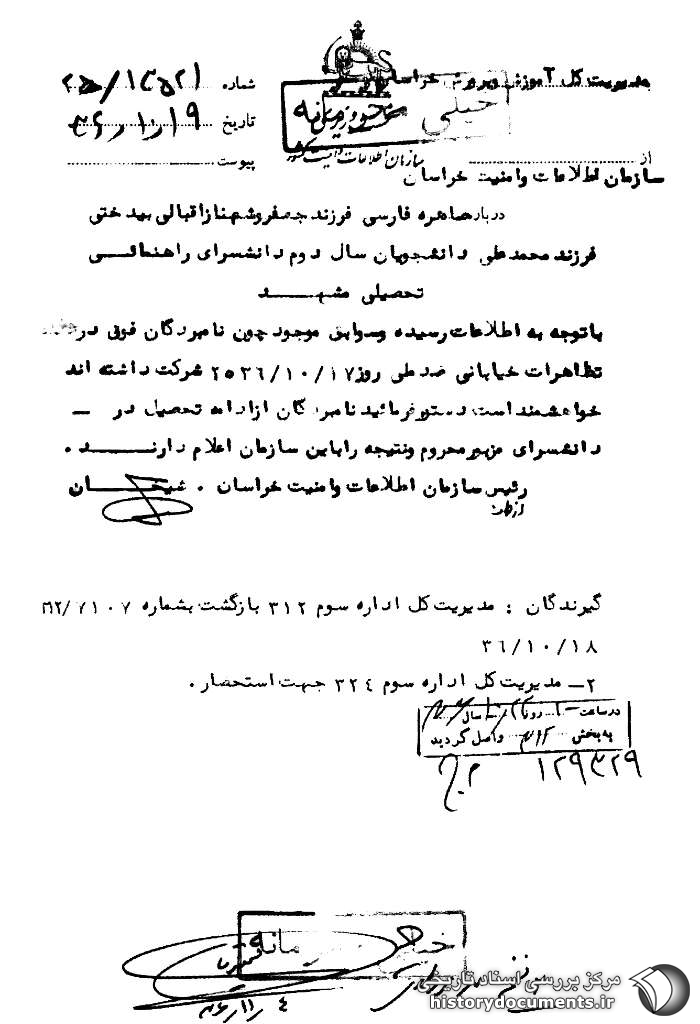 مدیریت کل آموزش و پرورش خراسان
شماره ۱۳۵۲۱/
تاریخ ۳۶/۱۰/۱۹
پیوست
خیلی محرمانه
سازمان اطلاعات و امنیت کشور
از
سازمان اطلاعات وامنیت خراسان
درباره طاهره فارسی فرزند جعفر و شهناز اقبالی بیدختی
فرزند محمد علی دانشجویان سال دوم دانشسرای راهنمائی
تحصیلی مشهد
باتوجه به اطلاعات رسیده وسوابق موجود چون نامبردگان فوق در
تظاهرات خیابانی ضد ملی روز ۲۵۳۶/۱۰/۱۷ شرکت داشته اند
خواهشمند است دستور فرمائید نامبردگان از ادامه تحصیل در –
دانشسرای مزبور محروم ونتیجه را باین سازمان اعلام دارند .
رئیس سازمان اطلاعات وامنیت خراسان . شیخان
از طرف
گیرندگان : مدیریت کل اداره سوم ۳۱۲ بازگشت بشماره ۳۱۲/۷۱۰۷
۳۶/۱۰/۱۸
۲– مدیریت کل اداره سوم ۳۲۴ جهت استحضار .
در ساعت روز سال
به بخش ۳۱۲ واصل گردید
۱۲۹۳۲۹
مرکز بررسی اسناد تاریخی
historydocuments.ir